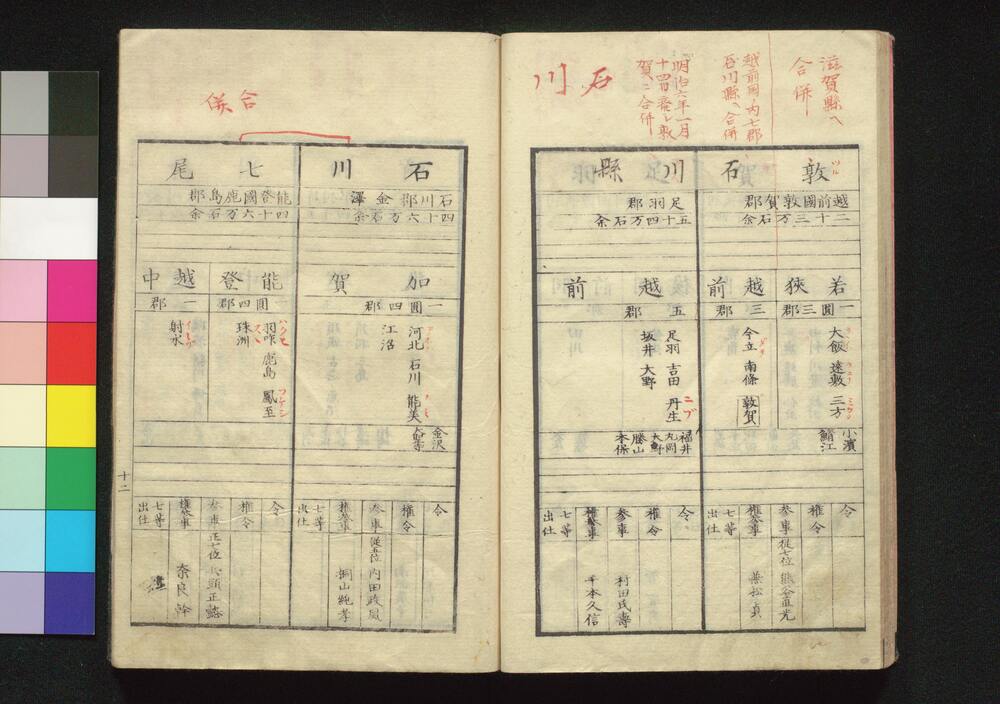 滋賀縣ヘ
合併
越前國ノ内七郡
石川縣ヘ合併
明治六年一月
十四日廃シ敦
賀ニ合併
石川
敦
ツル
越前國敦賀郡
二十三万石余
若狹
一圓三郡
大飯 遠敷 三方
小濱
鯖江
越前
三郡
今立 南條 敦賀
令
権令
参事
從七位 熊谷直光
権参事
兼松 貞
七等
出仕
石川縣
足羽郡
五十四万石余
越前
五郡
足羽 吉田 丹生
ニブ
坂井 大野
福井
丸岡
大野
勝山
本保
令
権令
参事
村田氏壽
権参事
千本久信
七等
出仕
石川
石川郡金澤
四十六万石余
加賀
一圓四郡
河北 石川 能美
江沼
金沢
令
権令
参事
從五位 内田政風
権参事
桐山純孝
七等
出仕
合併
七尾
能登國鹿島郡
四十六万石余
能登
一圓四郡
羽咋 鹿島 鳳至
珠洲
越中
一郡
射水
令
権令
参事
正七位
権参事
奈良 幹
七等
出仕
十二